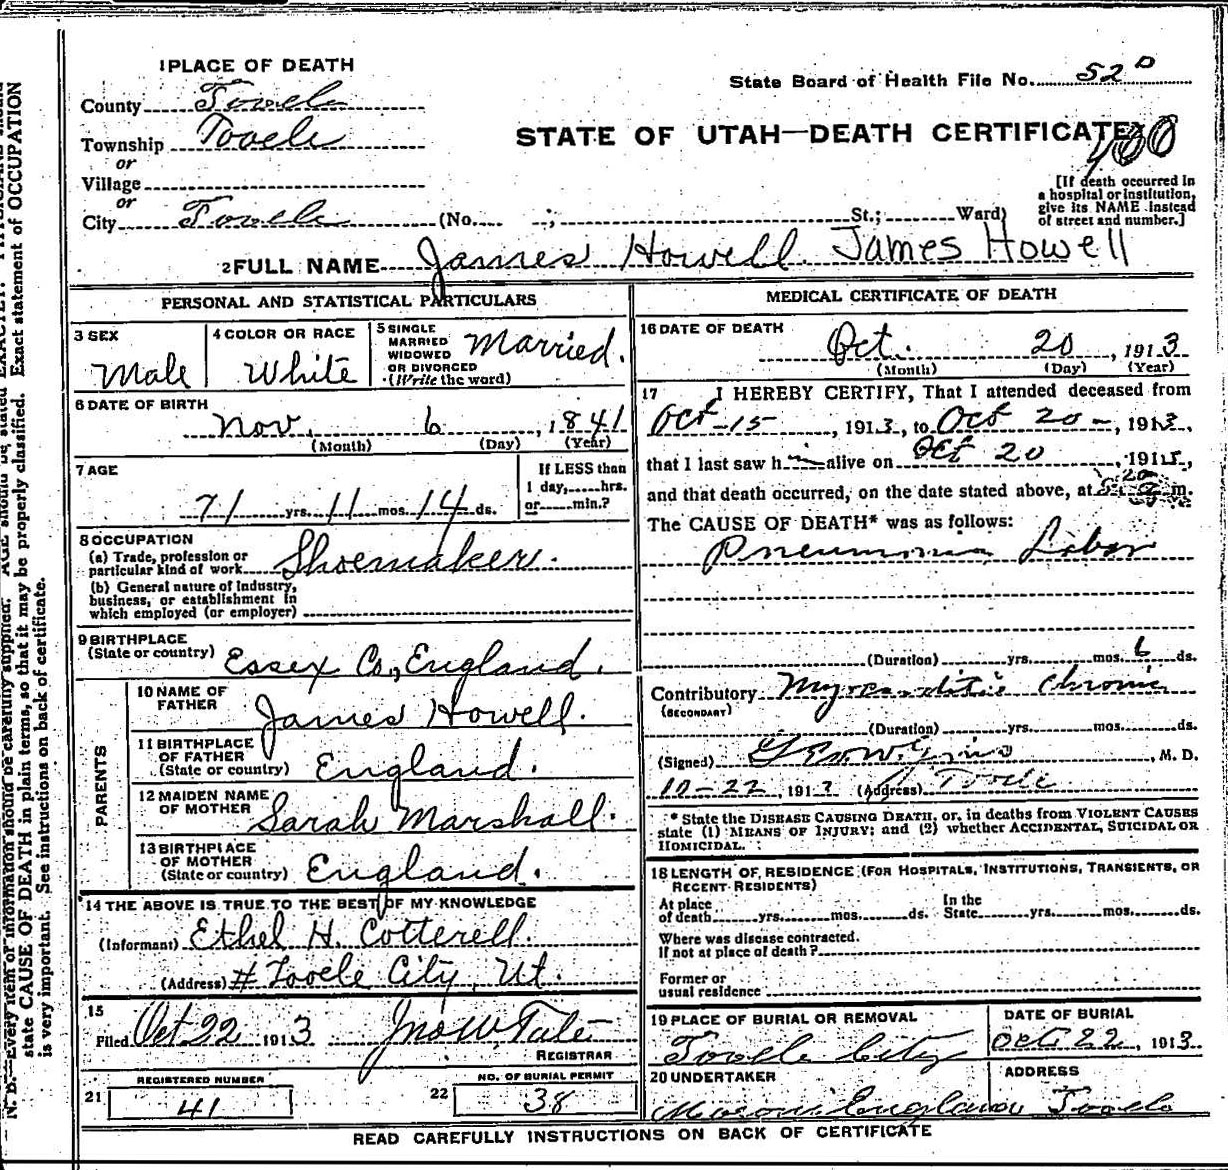 1 PLACE OF DEATH
State Board of Health File No. 52 D
County Tooele
STATE OF UTAH—DEATH CERTIFICATE
Township Tooele
or
Village
or
City Tooele (No. ; St.; Ward)
[If death occurred in
a hospital or institution,
give its NAME instead
of street and number.]
2 FULL NAME James Howell James Howell
PERSONAL AND STATISTICAL PARTICULARS
3 SEX
Male
4 COLOR OR RACE
White
5 SINGLE
MARRIED
WIDOWED
OR DIVORCED
(Write the word)
Married.
6 DATE OF BIRTH
Nov. 6, 1841
(Month) (Day) (Year)
7 AGE
71 yrs. 11 mos. 14 ds.
If LESS than
1 day, hrs.
or min.?
8 OCCUPATION
(a) Trade, profession or
particular kind of work Shoemaker.
(b) General nature of Industry,
business, or establishment in
which employed (or employer)
9 BIRTHPLACE
(State or country) Essex Co., England.
PARENTS
10 NAME OF
FATHER James Howell.
11 BIRTHPLACE
OF FATHER
(State or country) England.
12 MAIDEN NAME
OF MOTHER Sarah Marshall.
13 BIRTHPLACE
OF MOTHER
(State or country) England.
14 THE ABOVE IS TRUE TO THE BEST OF MY KNOWLEDGE
(Informant) Ethel H. Cotterell.
(Address) # Tooele City, Ut.
15
Filed Oct 22 1913 Jno W. Tate
REGISTRAR
REGISTERED NUMBER
21 41
NO. OF BURIAL PERMIT
22 38
MEDICAL CERTIFICATE OF DEATH
16 DATE OF DEATH
Oct. 20, 1913
(Month) (Day) (Year)
17 I HEREBY CERTIFY, That I attended deceased from
Oct-15, 1913, to Oct 20-, 1913,
that I last saw h alive on Oct 20, 191,
and that death occurred, on the date stated above, at m.
The CAUSE OF DEATH* was as follows:
Pneumonia Lobar
(Duration) yrs. mos. 6 ds.
Contributory Myocarditis Chronic
(SECONDARY)
(Duration) yrs. mos. ds.
(Signed) , M. D.
10-22, 1913 (Address) Tooele
* State the DISEASE CAUSING DEATH, or, in deaths from VIOLENT CAUSES
state (1) MEANS OF INJURY; and (2) whether ACCIDENTAL, SUICIDAL OR
HOMICIDAL.
18 LENGTH OF RESIDENCE (FOR HOSPITALS, INSTITUTIONS, TRANSIENTS, OR
RECENT RESIDENTS)
At place
of death yrs. mos. ds.
In the
State yrs. mos. ds.
Where was disease contracted.
If not at place of death?
Former or
usual residence
19 PLACE OF BURIAL OR REMOVAL
Tooele City
DATE OF BURIAL
Oct 22, 1913
20 UNDERTAKER
ADDRESS
Tooele
READ CAREFULLY INSTRUCTIONS ON BACK OF CERTIFICATE
N. B.—Every item of information should be carefully supplied. AGE should be stated EXACTLY.
state CAUSE OF DEATH in plain terms, so that it may be properly classified. Exact statement of OCCUPATION
is very important. See instructions on back of certificate.